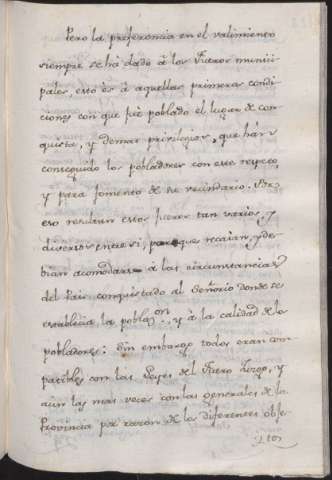 Pero la preferencia en el valimiento
siempre se há dado á los Fueros munici-
pales, esto és á aquellas primeras condi-
ciones con que fué poblado el lugar de con-
quista, y demas privilegios, que hán
conseguido los pobladores con este respeto
y para fomento de su vecindario. Por
eso resultan estos fueros tan varios, y
diversos entre si, porque recaían, y de-
bian acomodarse á las circunstancias
del Pais conquistado al Señorio donde se
establecia la poblaz.on, y á la calidad de los
pobladores: Sin embargo todos eran com-
patibles con las Leyes del Fuero Juzgo, y
aun las mas veces con las generales de la
Provincia por razon de los diferentes obje-
tos,